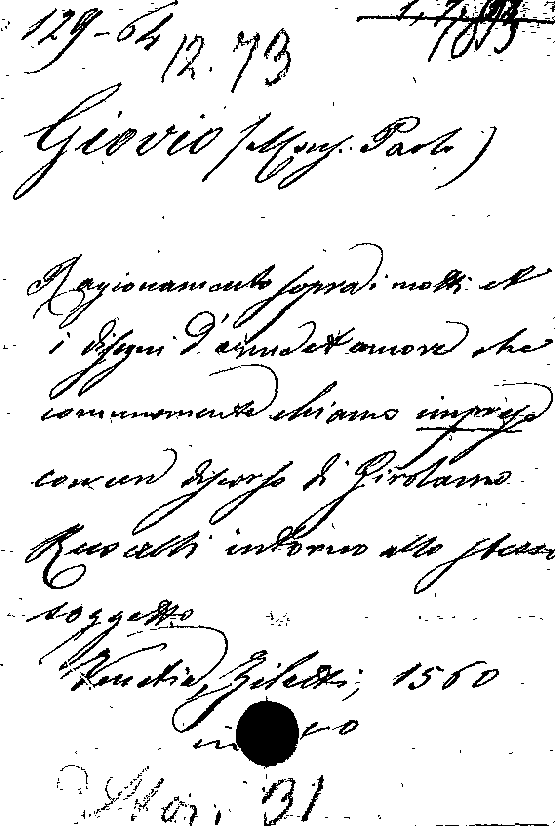 129-64
12.73
Giovio (Mons. Paolo)
Ragionamento sopra i motti et
i disegni d'arme et amore che
communemente chiamo imprese
con un discorso di Girolamo
Ruscelli intorno allo stesso
soggetto
Venetia, Ziletti, 1560
in
Stor. 31